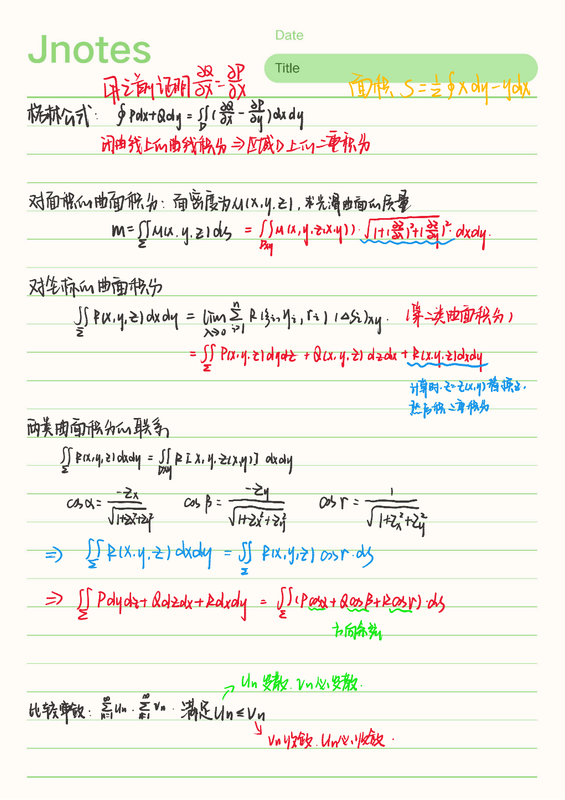 Jnotes
Date
Title
用之前证明 ∂Q/∂x = ∂P/∂x
面积 S = 1/2 ∮ xdy - ydx
格林公式: ∮ Pdx + Qdy = ∬_D (∂Q/∂x - ∂P/∂y) dxdy
闭曲线上的曲线积分 ⇒ 区域D上的二重积分
对面积的曲面积分: 面密度为 μ(x,y,z), 求光滑曲面的质量
m = ∬_Σ μ(x,y,z) ds = ∬_Dxy μ(x,y,z(x,y)) · √(1+(∂z/∂x)²+(∂z/∂y)²) · dxdy.
对坐标的曲面积分
∬_Σ R(x,y,z) dxdy = lim_{λ→0} Σ_{i=1}^n R(ξi, ηi, ri) (ΔSi)xy. (第二类曲面积分)
= ∬_Σ P(x,y,z) dydz + Q(x,y,z) dzdx + R(x,y,z) dxdy
计算时. z=z(x,y)替换z,
然后积二重积分
两类曲面积分的联系
∬_Σ R(x,y,z) dxdy = ∬_Dxy R[x,y,z(x,y)] dxdy
cosα = -Zx/√(1+Zx²+Zy²) cosβ = -Zy/√(1+Zx²+Zy²) cosr = 1/√(1+Zx²+Zy²)
⇒ ∬_Σ R(x,y,z) dxdy = ∬_Σ R(x,y,z) cosr · ds
⇒ ∬_Σ Pdydz + Qdzdx + Rdxdy = ∬_Σ (Pcosα + Qcosβ + Rcosr) · ds
方向余弦
Un 发散. Vn 必发散.
比较审敛: Σ_{n=1}^∞ Un . Σ_{n=1}^∞ Vn . 满足 Un ≤ Vn
Vn 收敛. Un 必收敛.